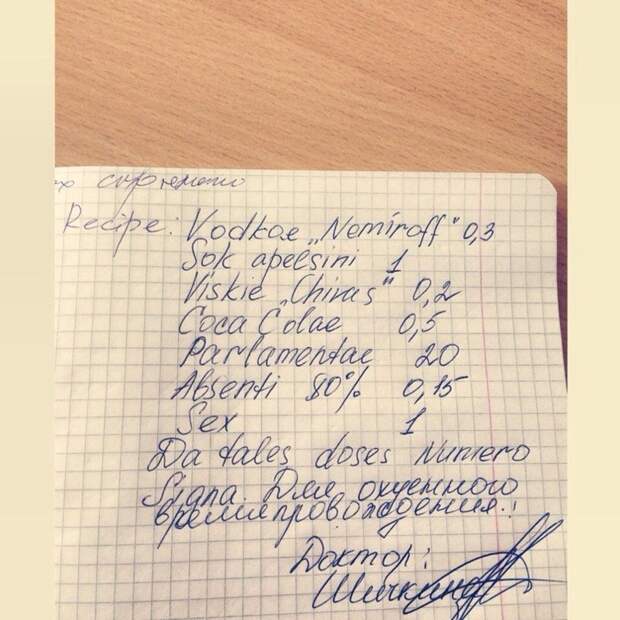 Recipe: Vodkae „Nemiroff" 0,3
Sok apelsini 1
Viskie „Chivas" 0,2
Coca Colae 0,5
Parlamentae 20
Absenti 80% 0,15
Sex 1
Da tales doses Numero
Signa. Для охуенного
времяпровождения.
Доктор: